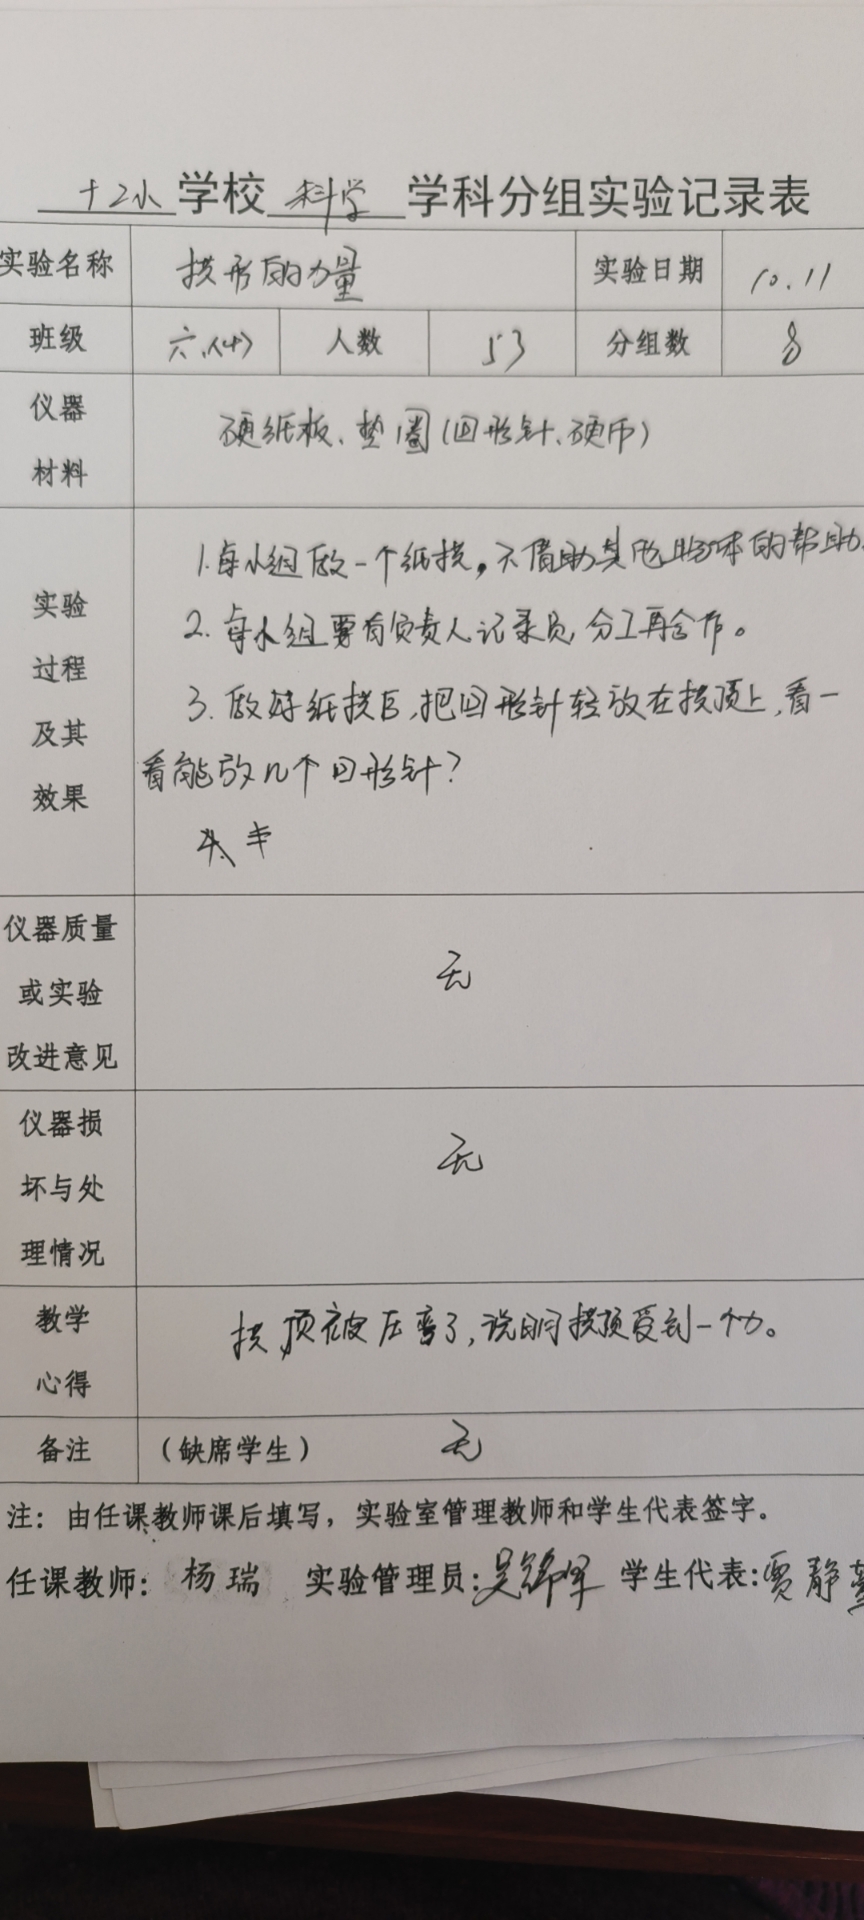 十二小学校科学学科分组实验记录表
实验名称 拱形的力量 实验日期 10.11
班级 六.(4) 人数 53 分组数 8
仪器
材料
硬纸板、垫圈(回形针、硬币)
实验
过程
及其
效果
1.每小组做一个纸拱,不借助其他物体的帮助.
2.每小组要有负责人记录员,分工再合作。
3.做好纸拱后,把回形针轻放在拱顶上,看一
看能放几个回形针?
仪器质量
或实验
改进意见
无
仪器损
坏与处
理情况
无
教学
心得
拱顶被压弯了,说明拱顶受到一个力。
备注 (缺席学生) 无
注:由任课教师课后填写,实验室管理教师和学生代表签字。
任课教师: 杨瑞 实验管理员: 学生代表:贾静